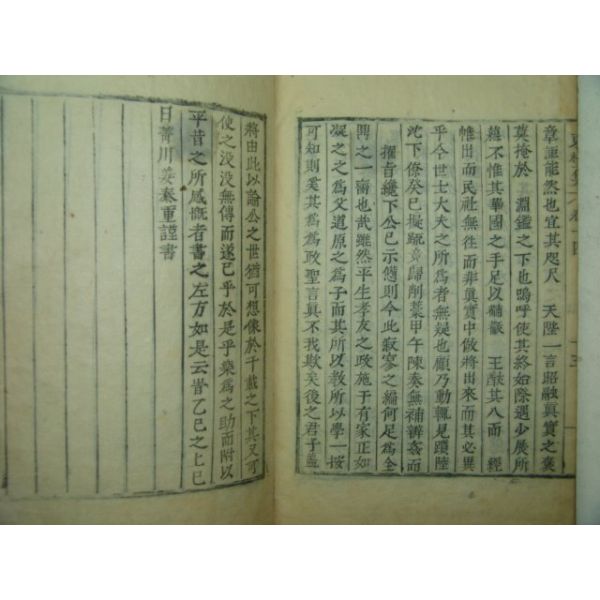 章謳能然也宜其咫尺 天陛一言昭融眞實之褒
莫掩於 淵鑑之下也嗚呼使其終始際遇少展所
蘊不惟其華國之手足以黼黻 王猷其八而 經
帷出而民社無往而非眞實中做將出來而其必異
乎今世士大夫之所爲者無疑也顧乃動輒見躓陸
沱下僚癸巳擬疏竟歸削藁甲午陳奏無補辨吝而
擢官纔下公已示憊則今此寂寥之編何足爲公
興之一臠也哉雖然平生孝友之政施于有家正如
凝之之爲父道原之爲子而其所以敎所以學一按
可知則奚其爲爲政聖言眞不我欺矣後之君子盖
將由此以論公之世猶可想像於千載之下其又可
使之沒沒無傳而遂已乎於是乎樂爲之助而附以
平昔之所感慨者書之左方如是云昔乙巳之上巳
日菁川姜泰重謹書